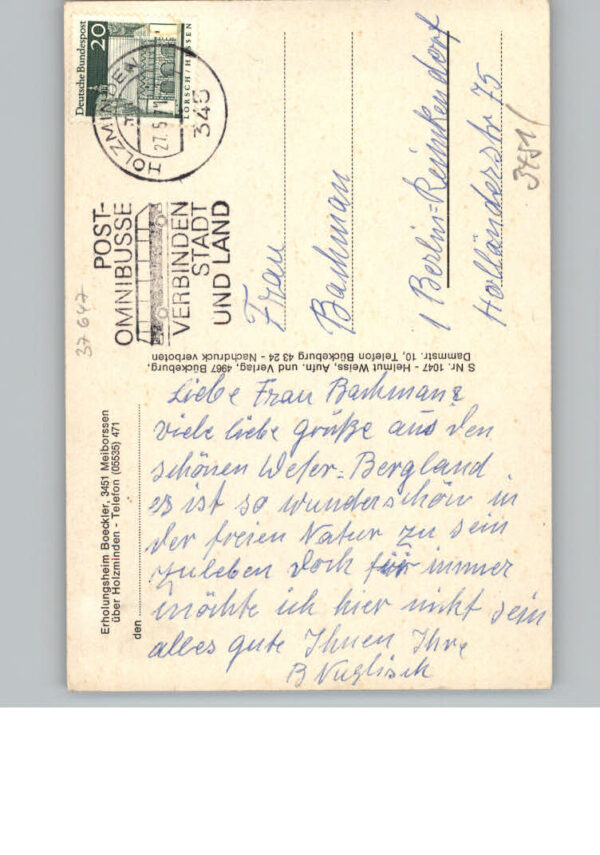 Erholungsheim Boeckler, 3451 Meiborssen
über Holzminden - Telefon (05535) 471
den
Liebe Frau Bachmann
viele liebe grüße aus den
schönen Weser-Bergland
es ist so wunderschön in
der freien Natur zu sein
zuleben doch für immer
möchte ich hier nicht sein
alles gute Ihnen Ihre
B
S Nr. 1047 - Helmut Weiss, Aufn. und Verlag, 4967 Bückeburg,
Dammstr. 10, Telefon Bückeburg 43 24 - Nachdruck verboten
37647
POST-
OMNIBUSSE
VERBINDEN
STADT
UND LAND
HOLZMINDEN
27.5.71
345
Deutsche Bundespost
20
LORSCH/HESSEN
Frau
Bachman
1 Berlin-Reinikendorf
Holländerstr 75
3451/